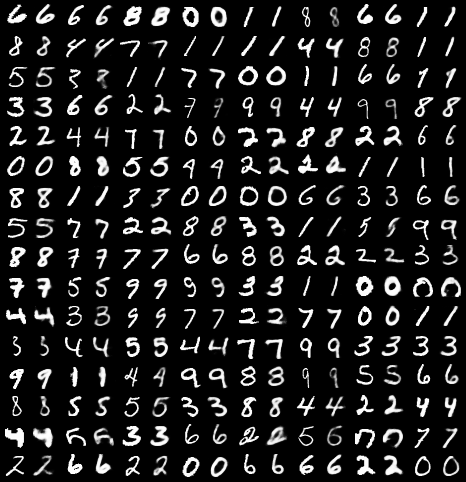 6 6 6 6 8 8 0 0 1 1 8 8 6 6 1 1
8 8 4 4 7 7 1 1 1 1 4 4 8 8 1 1
5 5 3 8 1 1 7 7 0 0 1 1 6 6
3 3 6 6 2 2 7 9 9 9 4 4 9 9 8 8
2 2 4 4 7 7 0 0 2 2 8 8 2 2 6 6
0 0 8 8 5 5 4 4 2 2 2 2 1 1 1 1
8 8 1 1 3 3 0 0 0 0 6 6 3 3 6 6
5 5 7 7 2 2 8 8 3 3 1 1 5 5 9 9
8 8 7 7 7 7 6 6 8 8 2 2 2 2 3 3
7 7 5 5 9 9 9 9 3 3 1 1 0 0
4 4 3 3 9 9 7 7 2 2 7 7 0 0 1 1
3 3 4 4 5 5 4 4 7 7 9 9 3 3 3 3
9 9 1 1 4 4 9 9 8 8 9 9 5 5 6 6
8 8 5 5 5 5 3 3 8 8 4 4 2 2 4 4
4 4 3 3 6 6 2 2 5 6 7 7
2 2 6 6 2 2 0 0 6 6 6 6 2 2 0 0